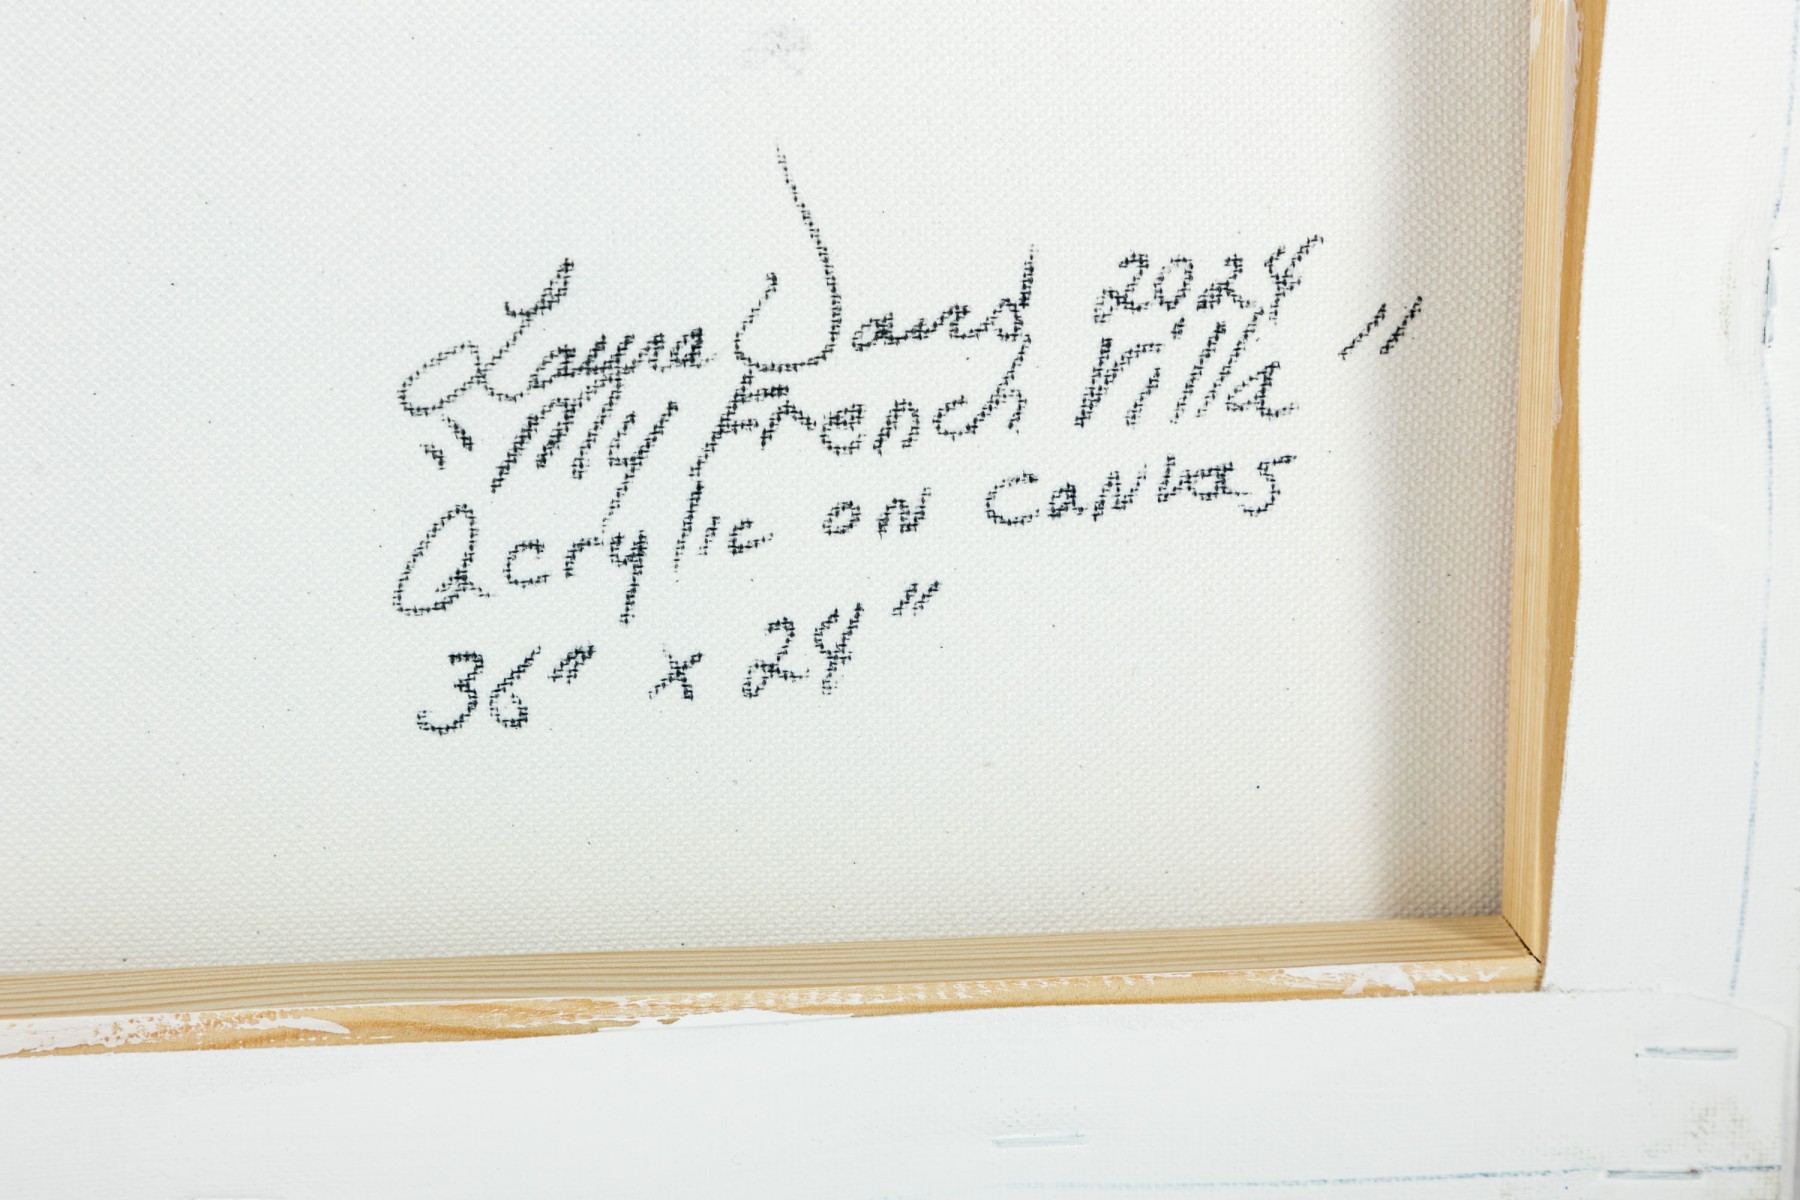 2024
"My French Villa"
Acrylic on Canvas
36" x 24"